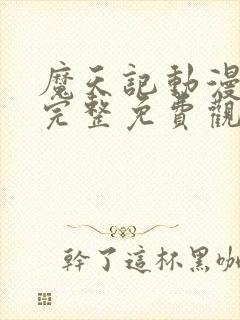 魔天記動漫
完整免費觀
幹了這杯黑咖